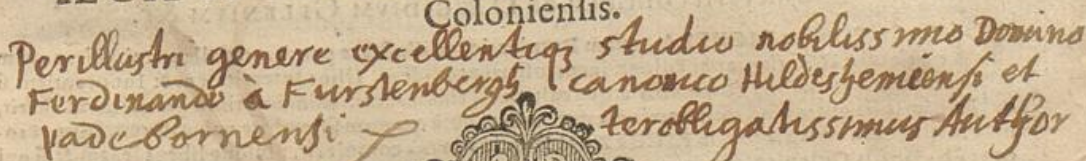 Coloniensis.
Perillustri genere excellentiq3 studio nobilissimo Domino
Ferdinando à Furstenbergh canonico Hildeshemiensi et
padebornensi terobligatissimus Author